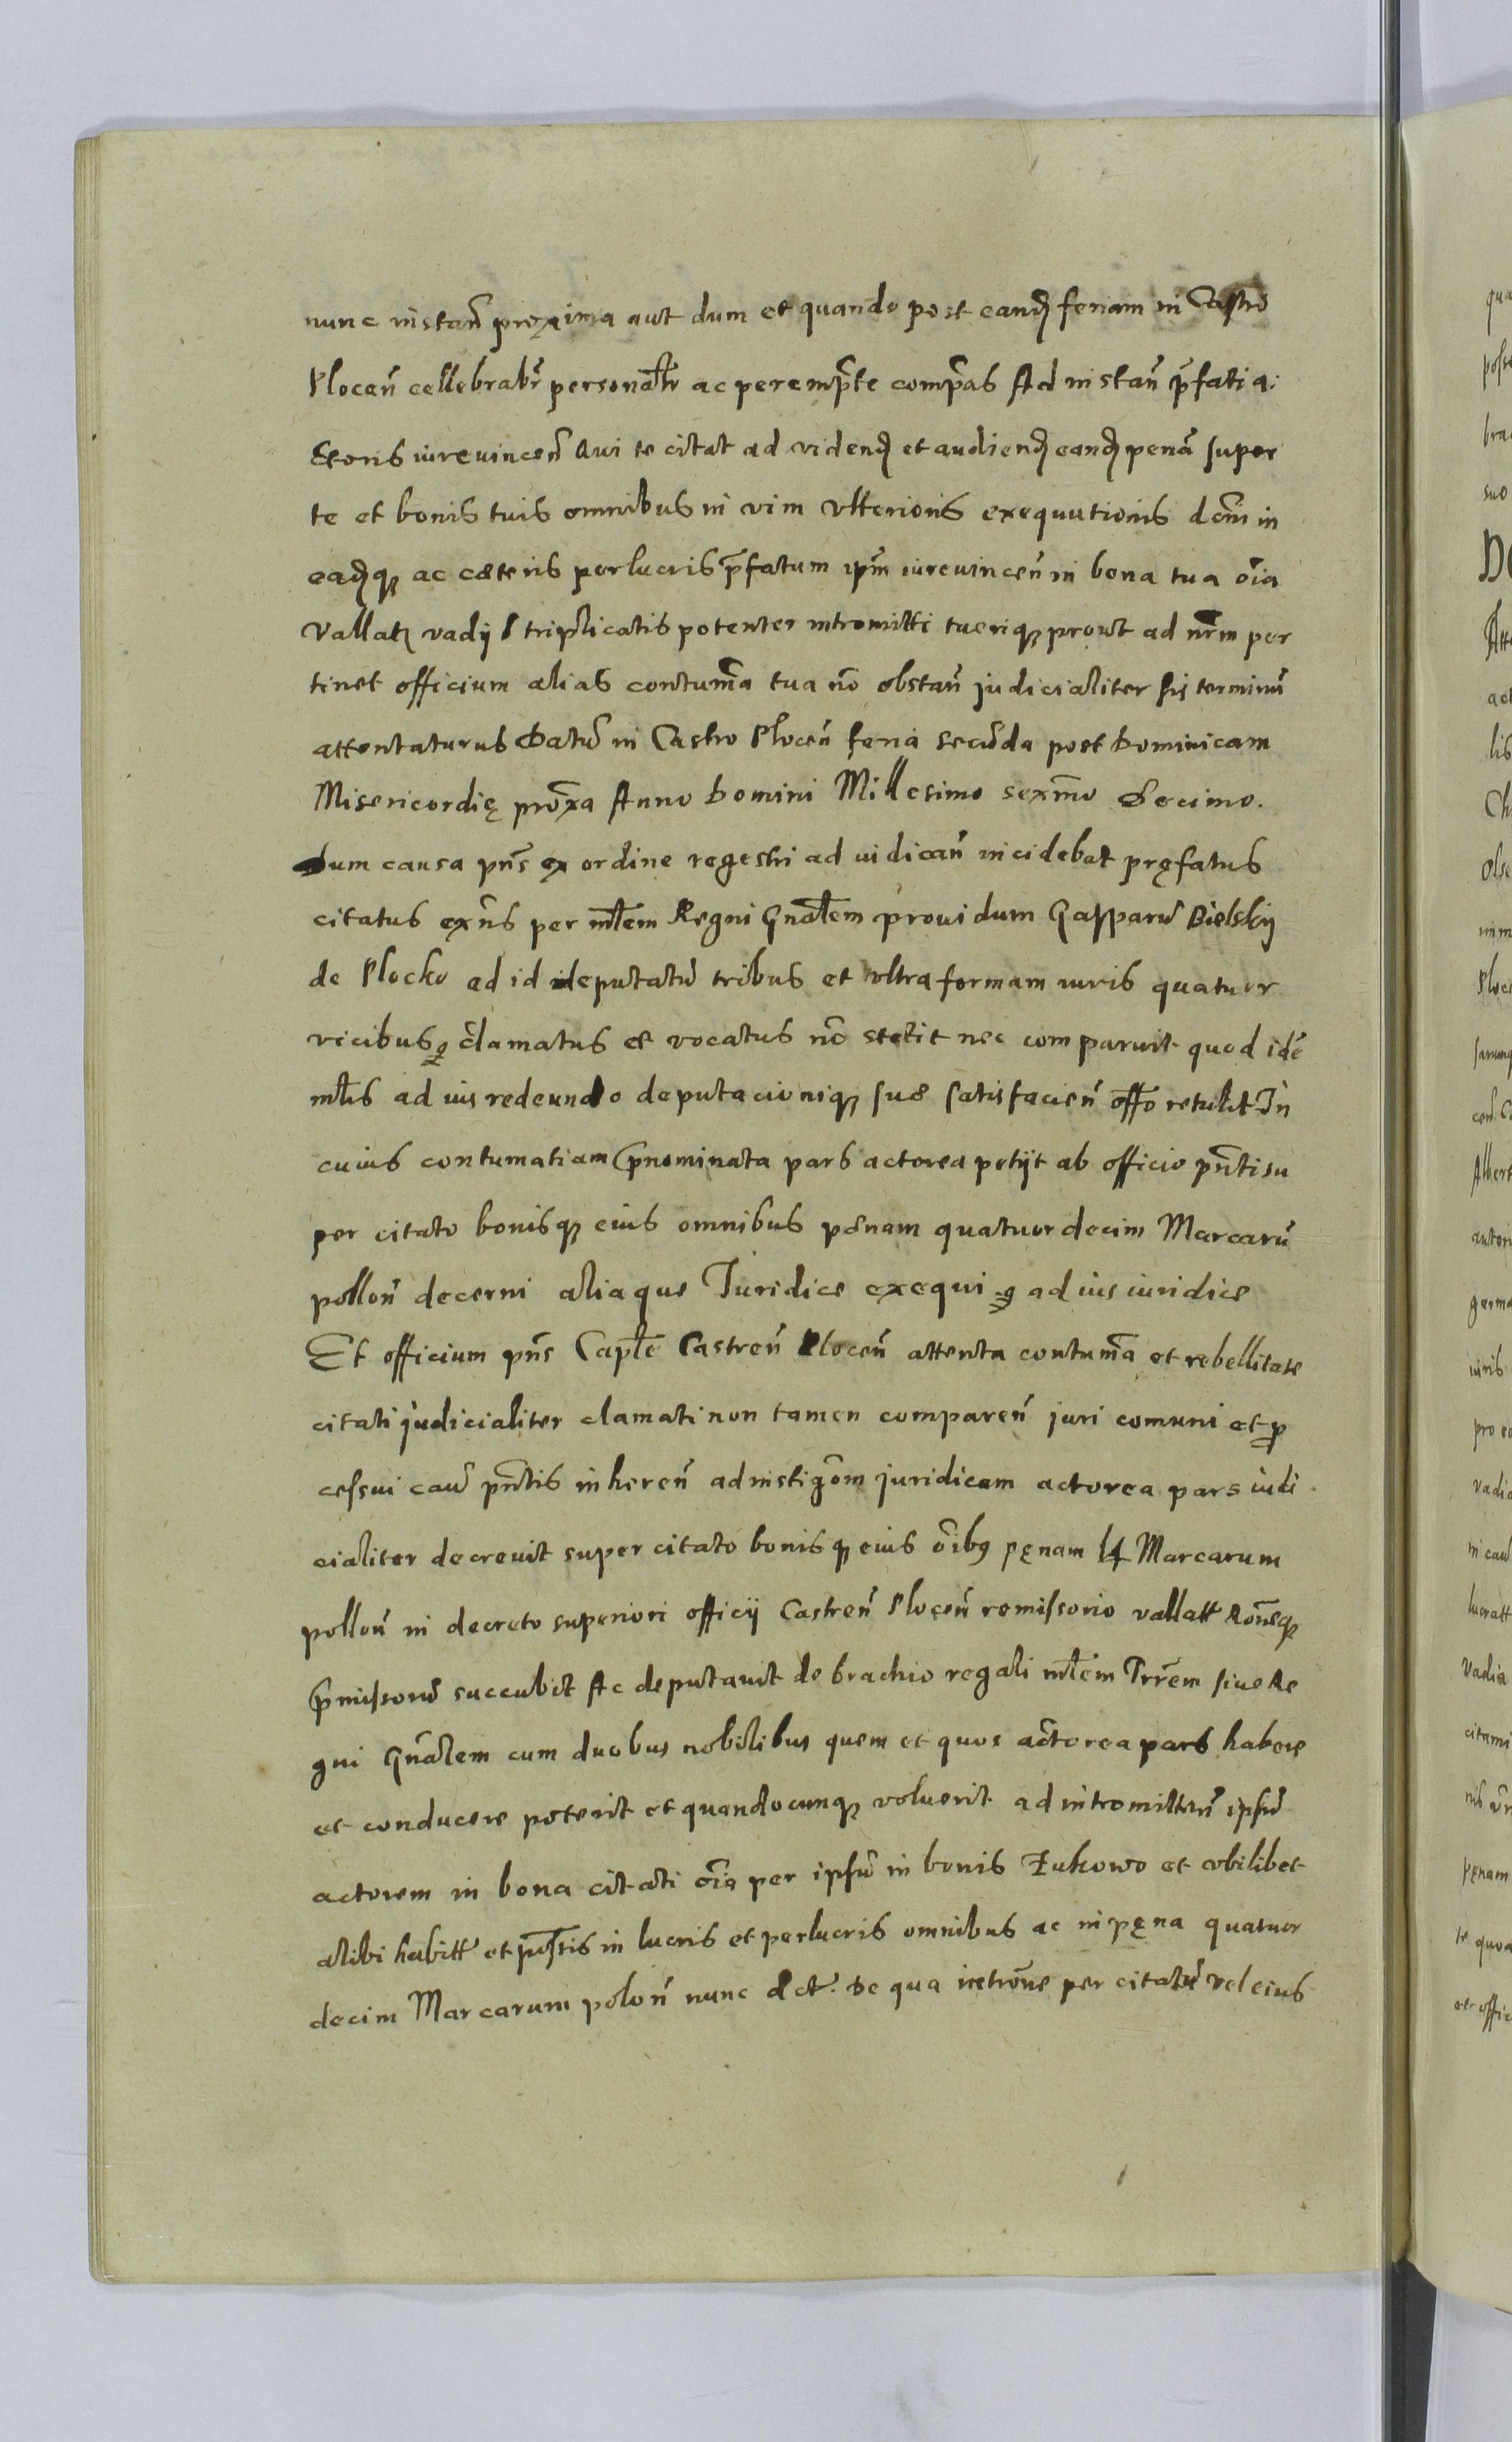 nunc instan̄ proxima aut dum et quando post eand feriam in Castro
Plocen̄ cellebrabr̄ personalr̄ ac perempt̄e comp̄as Ad instan̄ p̄fati a:
ctoris iurevincen̄ Qui te citat ad vidend et audiend eand penā super
te et bonis tuis omnibus in vim ulterioris exequutionis decr̄ni in
eadq ac cæteris perlucris p̄fatum ipm̄ iurevincen̄ in bona tua oīa
Vallatt vadijs triplicatis potenter intromitti tueriq prout ad nr̄m per
tinet officium alias contum̄a tua nō obstan̄ judicialiter sis terminū
attentaturus Datū in Castro Plocen̄ feria secūda post Dominicam
Misericordię prox̄a Anno Domini Millesimo sexm̄o Decimo.
dum causa pn̄s ex ordine regestri ad iudican̄ incidebat pręfatus
citatus exn̄s per mlt̄em Regni Gnal̄em providum Gasparū Bielskij
de Plocko ad id deputatū tribus et ultra formam iuris quatuor
vicibus clamatus et vocatus nō stetit nec comparuit quod idē
mlt̄is ad ius redeundo deputacioniq suæ satisfacien̄ offō retulit In
cuius contumatiam p̄nominata pars actorea petijt ab officio pn̄ti su
per citato bonisq eius omnibus pænam quatuordecim Marcarū
pollon̄ decerni aliaque Juridice exequi ad ius iuridice
Et officium pn̄s Capt̄le Castren̄ Plocen̄ attenta contum̄a et rebellitate
citati judicialiter clamati non tamen comparen̄ juri comuni et p
cessui caūs pn̄tis inheren̄ ad instigōm juridicam actorea pars iudi
cialiter decrevit super citato bonisq eius oīb9 pęnam 14 Marcarum
pollon̄ in decreto superiori officij Castren̄ Plocen̄ remissorio vallatt Roneq
p̄missorū succubit Ac deputavit de brachio regali mlt̄em Trr̄em sive Re
gni Gnal̄em cum duobus nobilibus quem et quos actorea pars habere
et conducere poterit et quandocunq voluerit ad intromitten̄ ipsū
actorem in bona citati oīa per ipsū in bonis Zukowo et ubilibet
alibi habitt et poss̄is in lucris et perlucris omnibus ac in pęna quatuor
decim Marcarum polon̄ nunc dct. De qua intrōne per citatū vel eius